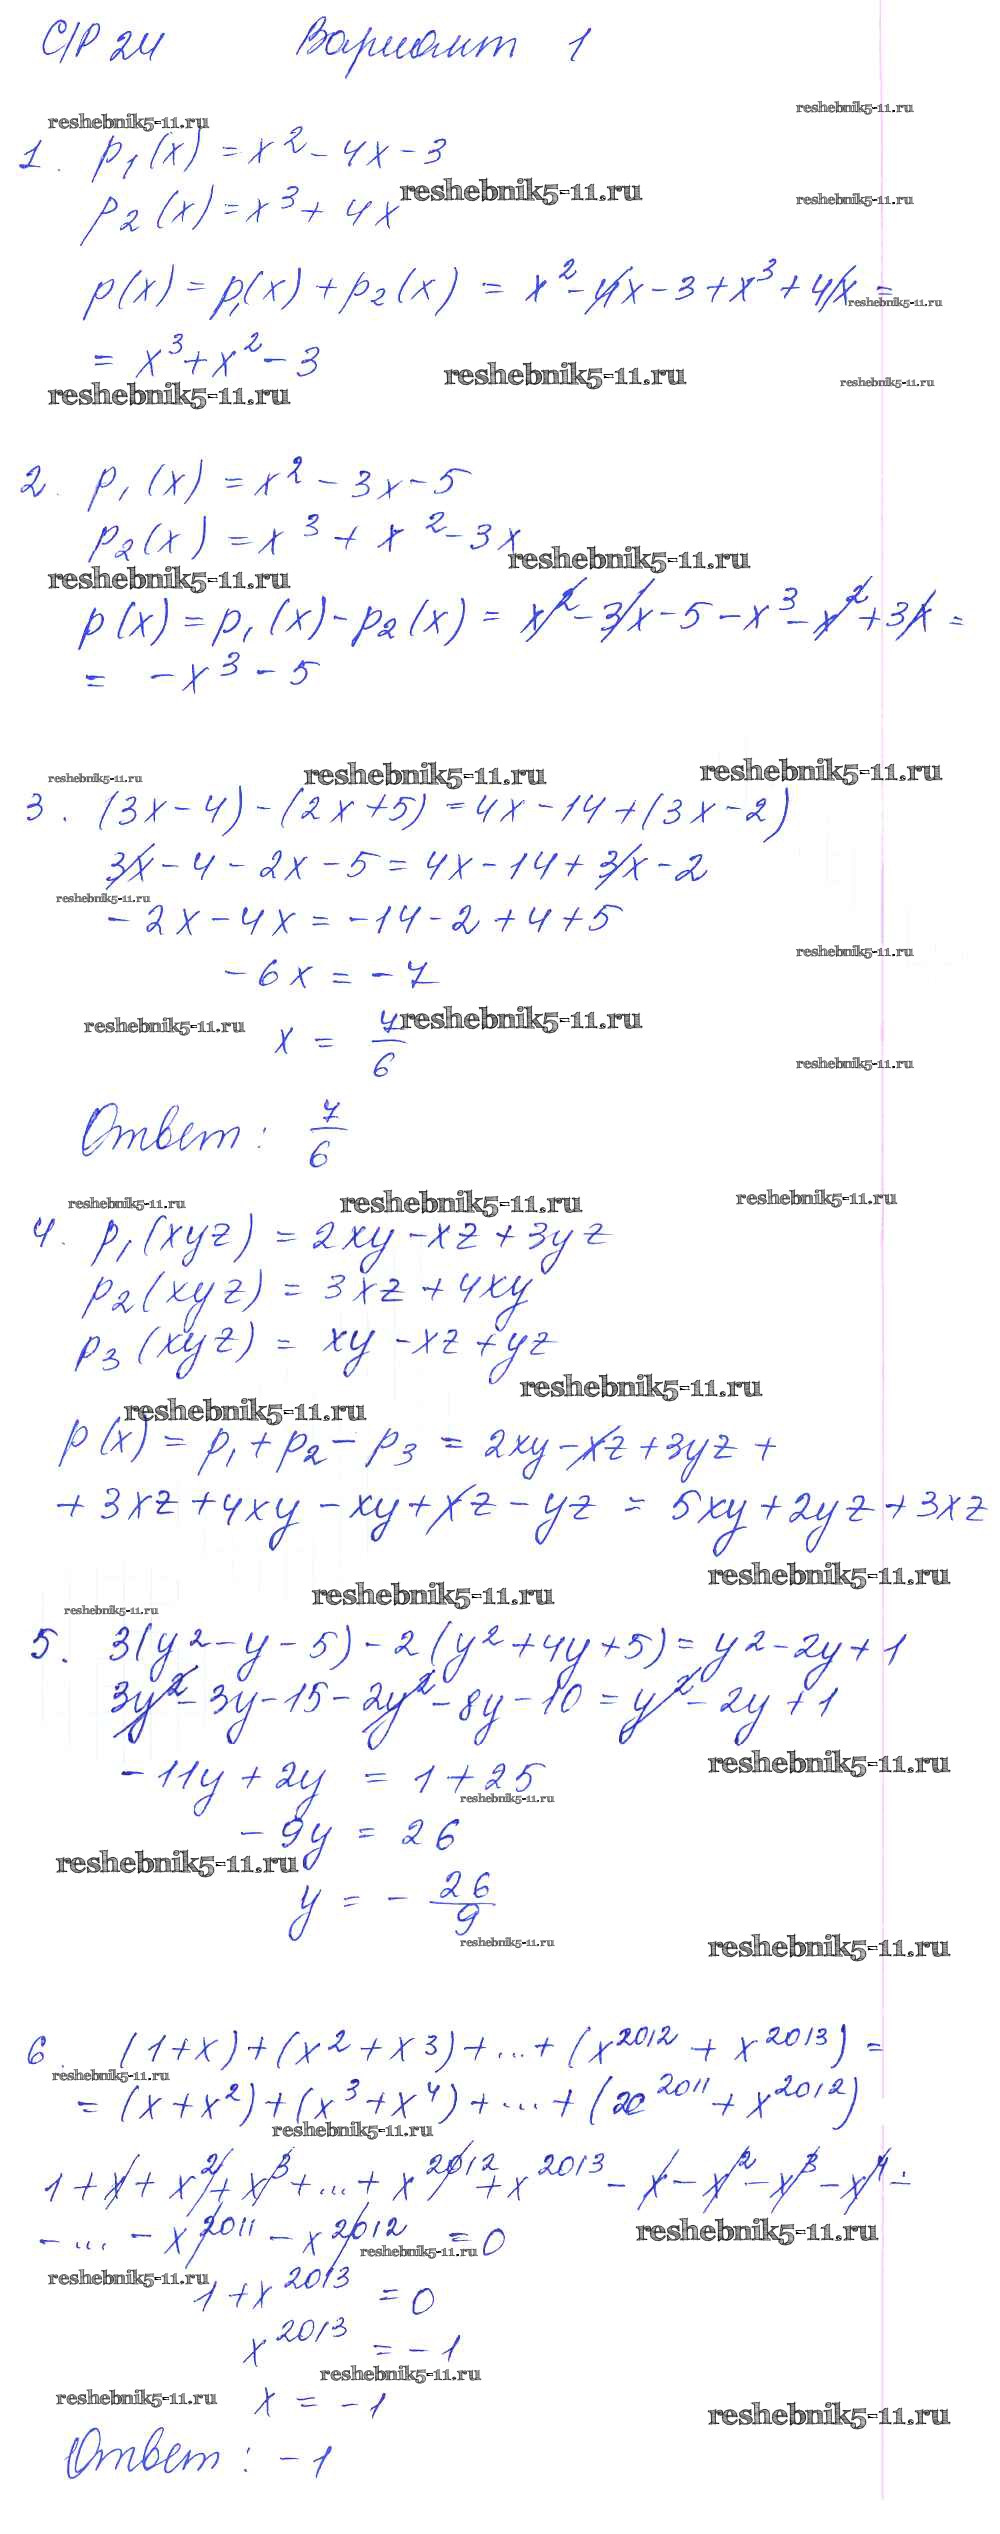 С/Р 24 Вариант 1
reshebnik5-11.ru reshebnik5-11.ru
1. p₁(x) = x² - 4x - 3
reshebnik5-11.ru reshebnik5-11.ru
p₂(x) = x³ + 4x
p(x) = p₁(x) + p₂(x) = x² - 4x - 3 + x³ + 4x =
reshebnik5-11.ru
= x³ + x² - 3
reshebnik5-11.ru reshebnik5-11.ru reshebnik5-11.ru
2. p₁(x) = x² - 3x - 5
p₂(x) = x³ + x² - 3x
reshebnik5-11.ru reshebnik5-11.ru
p(x) = p₁(x) - p₂(x) = x² - 3x - 5 - x³ - x² + 3x =
= -x³ - 5
reshebnik5-11.ru reshebnik5-11.ru reshebnik5-11.ru
3. (3x - 4) - (2x + 5) = 4x - 14 + (3x - 2)
3x - 4 - 2x - 5 = 4x - 14 + 3x - 2
reshebnik5-11.ru
-2x - 4x = -14 - 2 + 4 + 5
reshebnik5-11.ru
-6x = -7
reshebnik5-11.ru reshebnik5-11.ru
x = 7/6
reshebnik5-11.ru
Ответ: 7/6
reshebnik5-11.ru reshebnik5-11.ru reshebnik5-11.ru
4. p₁(xyz) = 2xy - xz + 3yz
p₂(xyz) = 3xz + 4xy
p₃(xyz) = xy - xz + yz
reshebnik5-11.ru reshebnik5-11.ru
p(x) = p₁ + p₂ - p₃ = 2xy - xz + 3yz +
+ 3xz + 4xy - xy + xz - yz = 5xy + 2yz + 3xz
reshebnik5-11.ru reshebnik5-11.ru reshebnik5-11.ru
5. 3(y² - y - 5) - 2(y² + 4y + 5) = y² - 2y + 1
3y² - 3y - 15 - 2y² - 8y - 10 = y² - 2y + 1
reshebnik5-11.ru
-11y + 2y = 1 + 25
reshebnik5-11.ru
-9y = 26
reshebnik5-11.ru
y = - 26/9
reshebnik5-11.ru reshebnik5-11.ru
6. (1 + x) + (x² + x3) + ... + (x²⁰¹² + x²⁰¹³) =
reshebnik5-11.ru
= (x + x²) + (x³ + x⁴) + ... + (x²⁰¹¹ + x²⁰¹²)
reshebnik5-11.ru
1 + x + x² + x³ + ... + x²⁰¹² + x²⁰¹³ - x - x² - x³ - x⁴ -
reshebnik5-11.ru
- ... - x²⁰¹¹ - x²⁰¹² = 0
reshebnik5-11.ru
reshebnik5-11.ru
1 + x²⁰¹³ = 0
x²⁰¹³ = -1
reshebnik5-11.ru
reshebnik5-11.ru reshebnik5-11.ru
x = -1
Ответ: -1